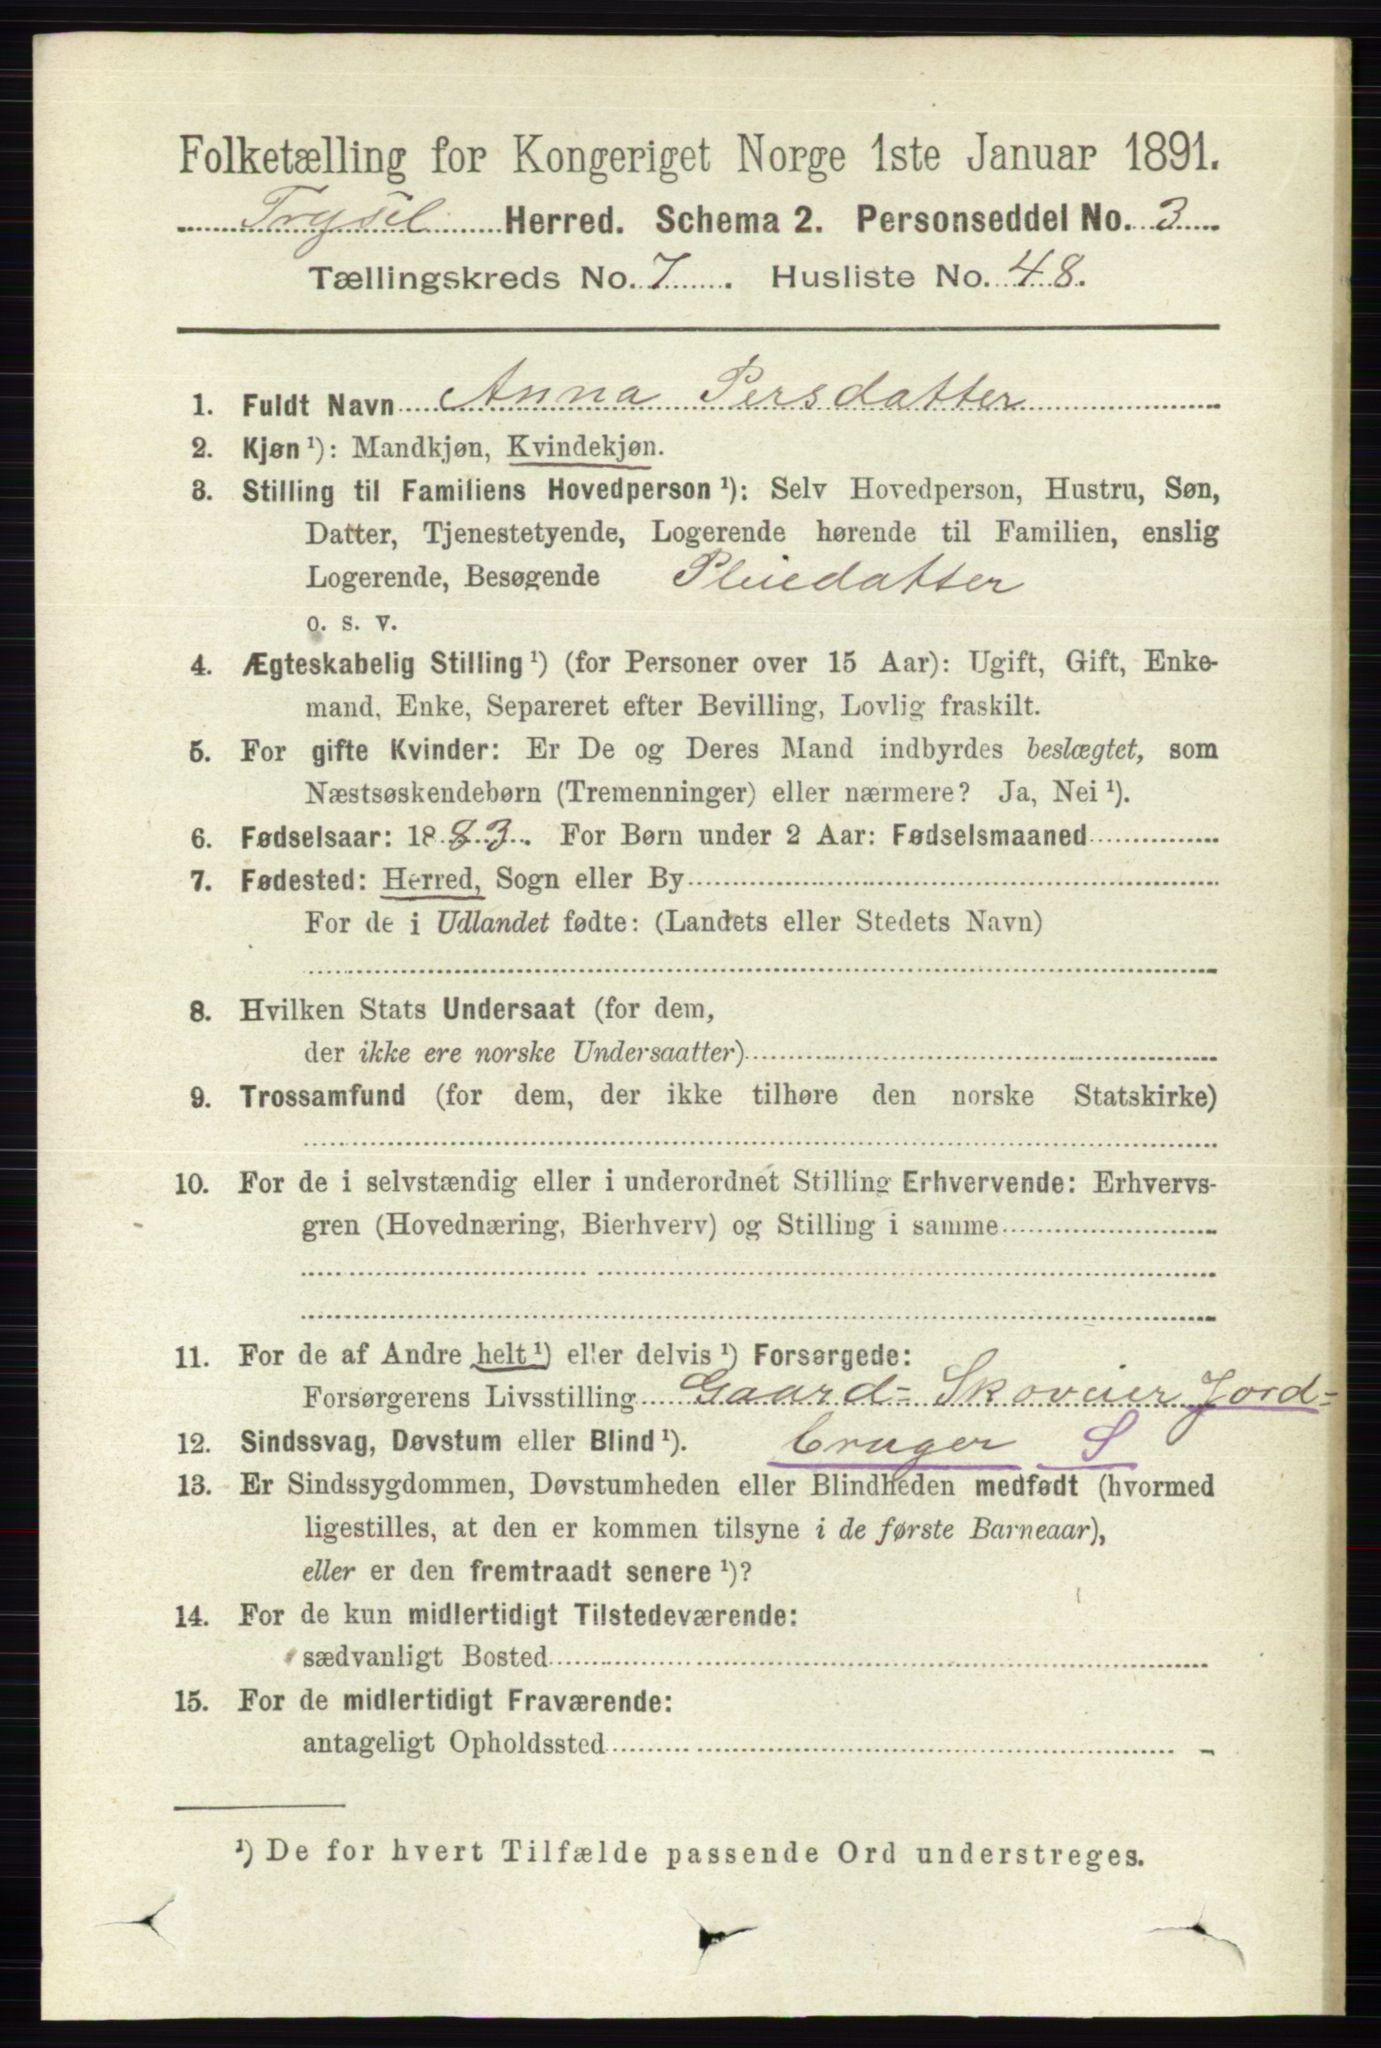 Folketælling for Kongeriget Norge 1ste Januar 1891.
Trysil Herred. Schema 2. Personseddel No. 3
Tællingskreds No. 7. Husliste No. 48.
1. Fuldt Navn Anna Persdatter
2. Kjøn ¹): Mandkjøn, Kvindekjøn.
3. Stilling til Familiens Hovedperson ¹): Selv Hovedperson, Hustru, Søn,
Datter, Tjenestetyende, Logerende hørende til Familien, enslig
Logerende, Besøgende Pleiedatter
o. s. v.
4. Ægteskabelig Stilling ¹) (for Personer over 15 Aar): Ugift, Gift, Enke-
mand, Enke, Separeret efter Bevilling, Lovlig fraskilt.
5. For gifte Kvinder: Er De og Deres Mand indbyrdes beslægtet, som
Næstsøskendebørn (Tremenninger) eller nærmere? Ja, Nei ¹).
6. Fødselsaar: 1883. For Børn under 2 Aar: Fødselsmaaned
7. Fødested: Herred, Sogn eller By
For de i Udlandet fødte: (Landets eller Stedets Navn)
8. Hvilken Stats Undersaat (for dem,
der ikke ere norske Undersaatter)
9. Trossamfund (for dem, der ikke tilhøre den norske Statskirke)
10. For de i selvstændig eller i underordnet Stilling Erhvervende: Erhvervs-
gren (Hovednæring, Bierhverv) og Stilling i samme
11. For de af Andre helt ¹) eller delvis ¹) Forsørgede:
Forsørgerens Livsstilling Gaard- Skoveier Jord-
12. Sindssvag, Døvstum eller Blind ¹). bruger S
13. Er Sindssygdommen, Døvstumheden eller Blindheden medfødt (hvormed
ligestilles, at den er kommen tilsyne i de første Barneaar),
eller er den fremtraadt senere ¹)?
14. For de kun midlertidigt Tilstedeværende:
sædvanligt Bosted
15. For de midlertidigt Fraværende:
antageligt Opholdssted
¹) De for hvert Tilfælde passende Ord understreges.